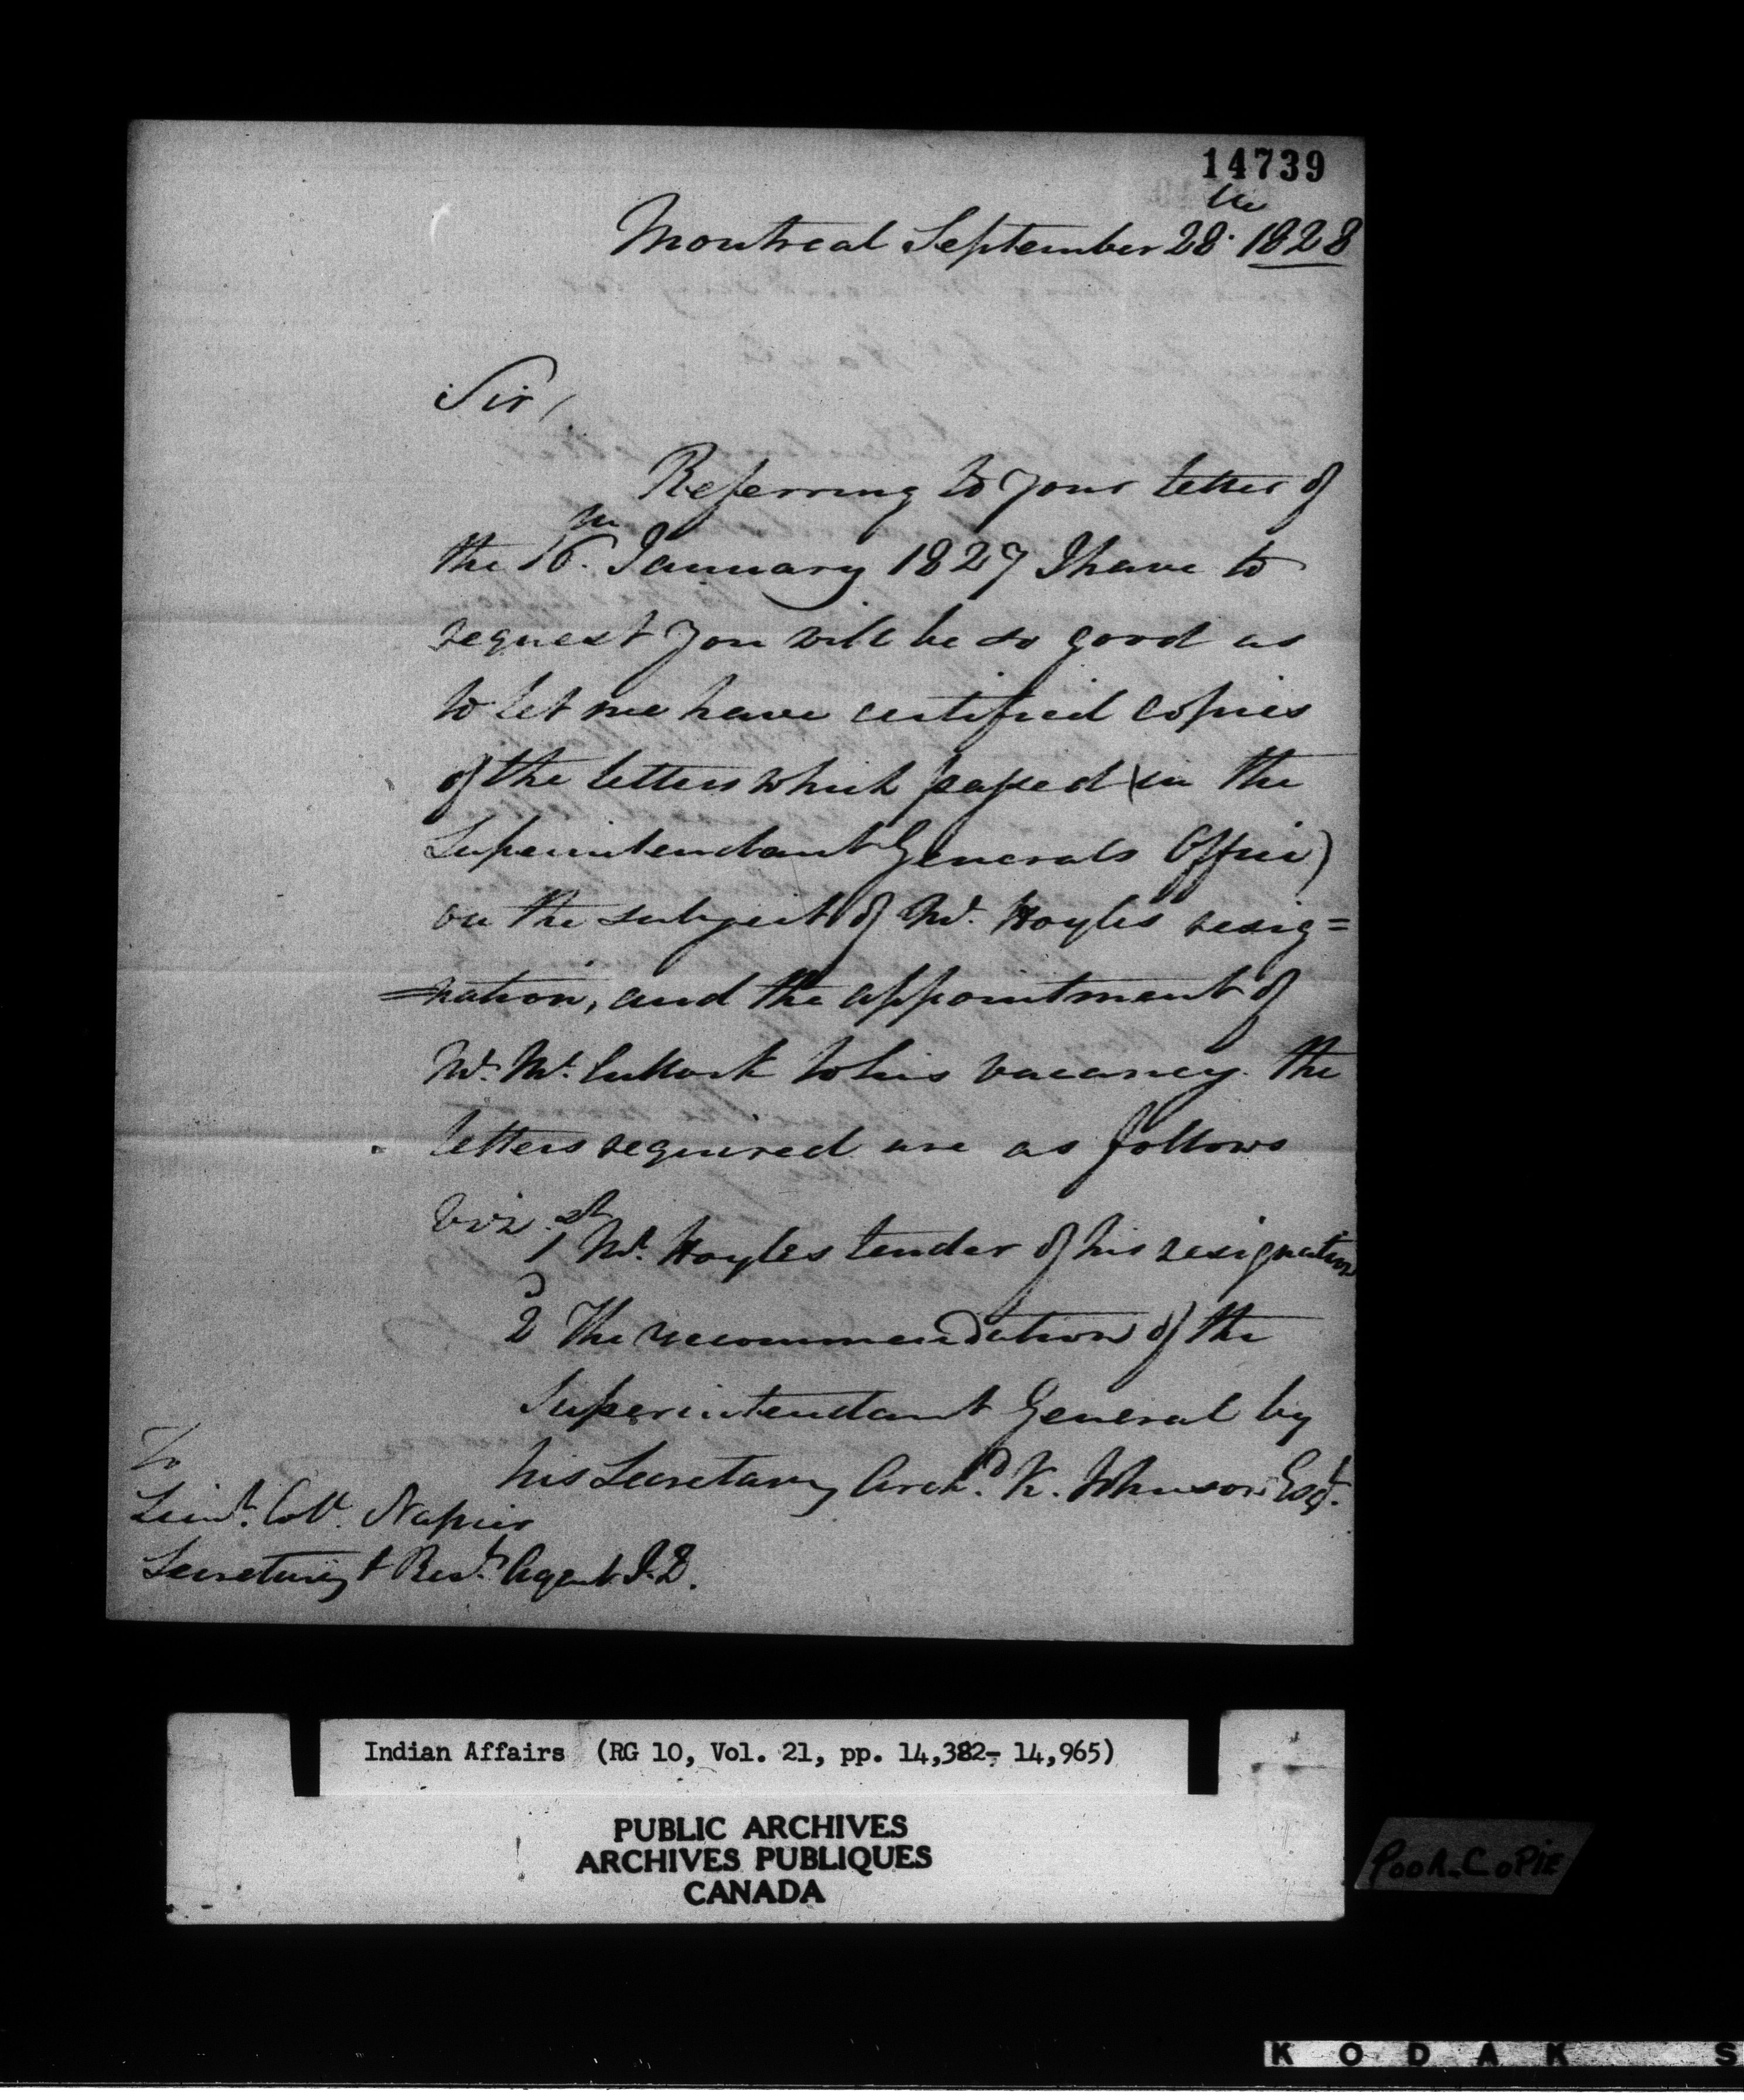 14739
Montreal September 28th 1828
Sir/
Referring to your letter of
the 16th January 1827 I have to
request you will be so good as
to let me have certified copies
of the letters which passed (in the
Superintendant Generals Office)
on the subject of Mr. Hoyles resig=
=nation, and the appointment of
Mr. McCullock to his vacancy. The
letters required are as follows
viz.
1st Mr. Hoyles tender of his resignation
2d The recommendation of the
Superintendant General by
his Secretary Archd. K. Johnson Esqr.
To
Lieut. Coll. Napier
Secretary & Rest. Agent I.D.
Indian Affairs (RG 10, Vol. 21, pp. 14,382- 14,965)
PUBLIC ARCHIVES
ARCHIVES PUBLIQUES
CANADA
POOR COPIE
KODAK S